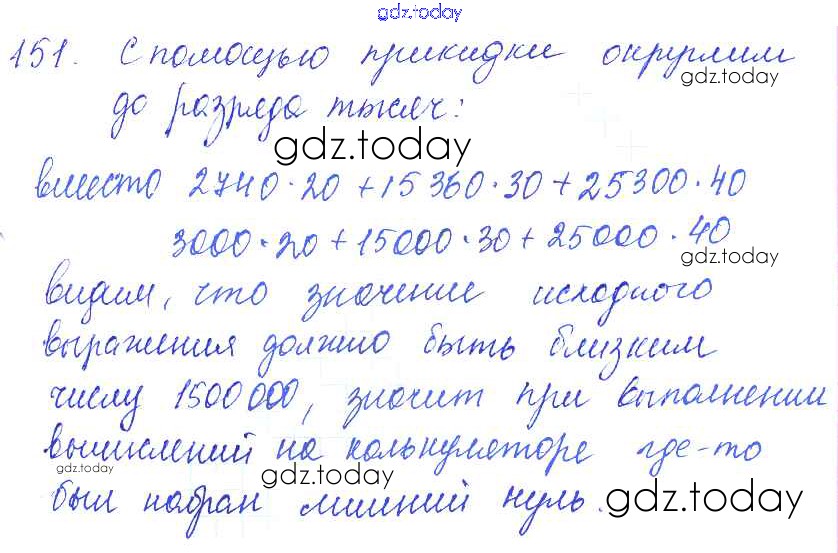 gdz.today
151. С помощью прикидки округлим
gdz.today
до разряда тысяч:
gdz.today
вместо 2740·20+15360·30+25300·40
3000·20+15000·30+25000·40
gdz.today
видим, что значение исходного
выражения должно быть близким
gdz.today
числу 1500000, значит при выполнении
вычислений на калькуляторе где-то
gdz.today
gdz.today
был набран лишний нуль.
gdz.today